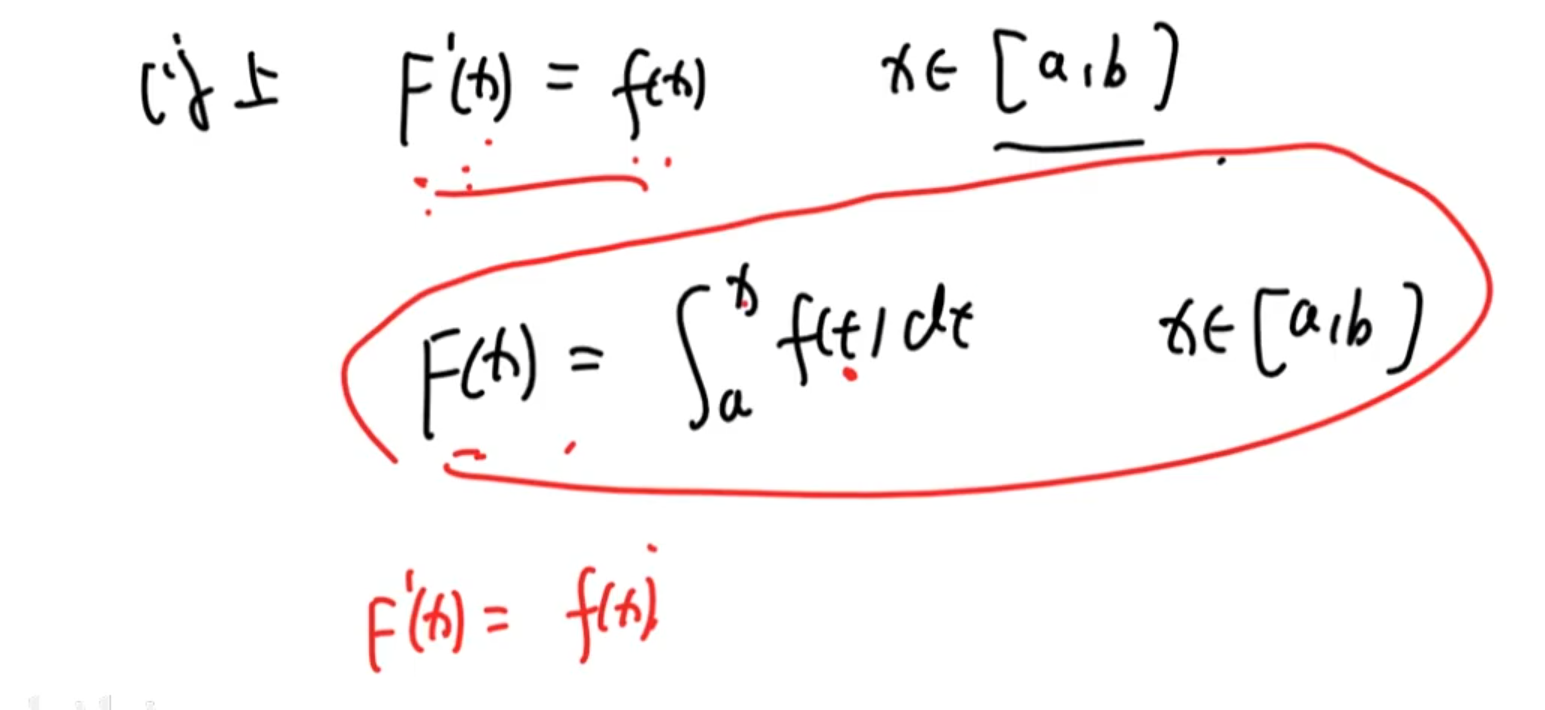 F'(x) = f(x) x∈[a,b]
F(x) = ∫_a^x f(t)dt x∈[a,b]
F'(x) = f(x)